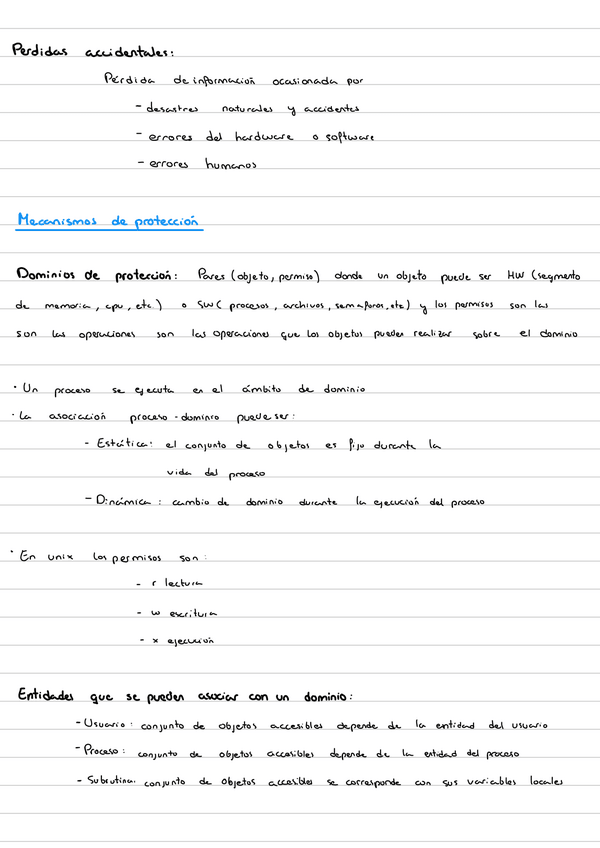 Perdidas accidentales:
Pérdida de información ocasionada por
- desastres naturales y accidentes
- errores del hardware o software
- errores humanos
Mecanismos de protección
Dominios de protección: Pares (objeto, permiso) donde un objeto puede ser HW (segmento
de memoria, cpu, etc) o SW (procesos, archivos, semaforos, etc) y los permisos son las
son las operaciones son las operaciones que los objetos pueden realizar sobre el dominio
· Un proceso se ejecuta en el ámbito de dominio
· La asociación proceso - dominio puede ser:
- Estática: el conjunto de objetos es fijo durante la
vida del proceso
- Dinámica: cambio de dominio durante la ejecución del proceso
· En unix los permisos son:
- r lectura
- w escritura
- x ejecución
Entidades que se pueden asociar con un dominio:
- Usuario: conjunto de objetos accesibles depende de la entidad del usuario
- Proceso: conjunto de objetos accesibles depende de la entidad del proceso
- Subrutina: conjunto de objetos accesibles se corresponde con sus variables locales